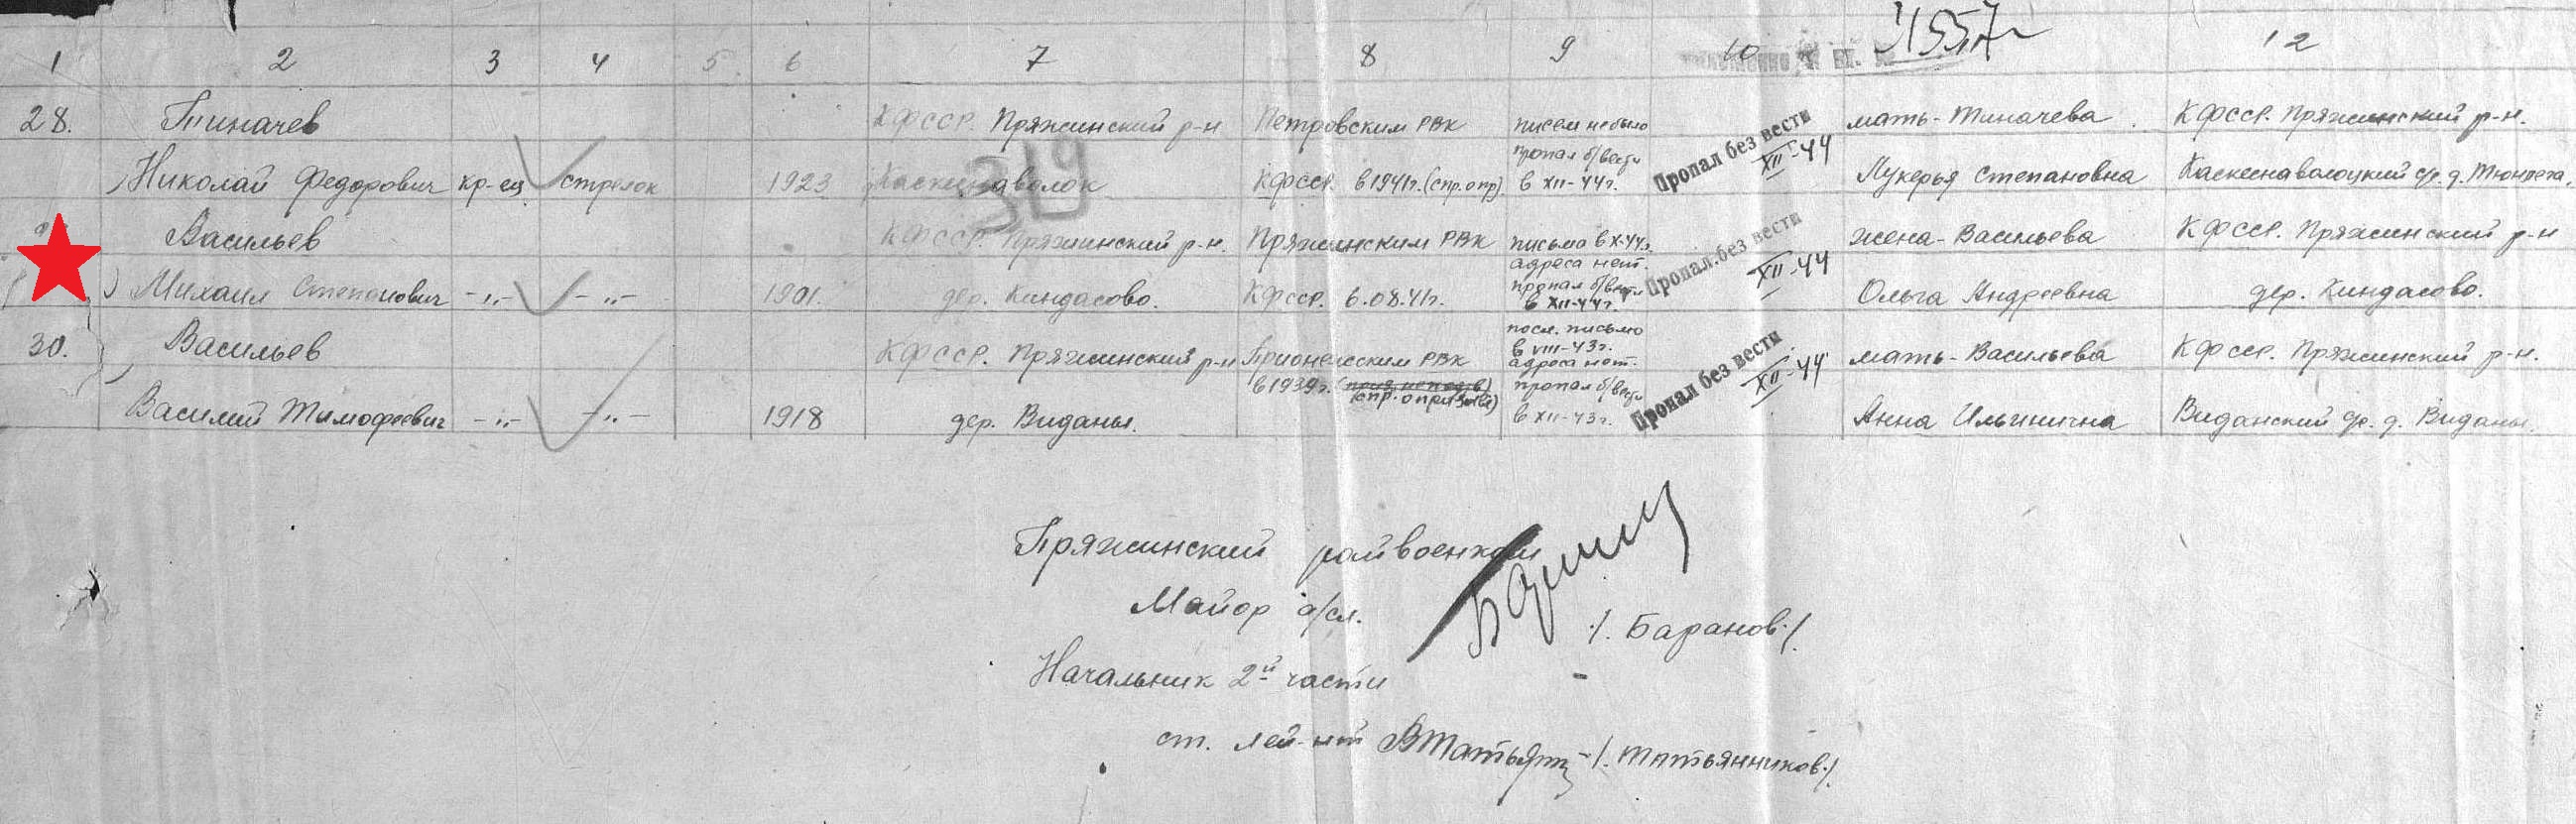 1 2 3 4 5 6 7 8 9 10 41557 12
28. Тиначев КФССР. Пряжинский р-н Петровским РВК писем не было Пропал без вести мать - Тиначева КФССР. Пряжинский р-н.
пропал б/вести XII-44
Николай Федорович кр-ец стрелок 1923 Каскеснаволок КФССР. в 1941г. (спр. опр) в XII-44г. Лукерья Степановна Каскеснаволоцкий с/с. д.
319
Васильев КФССР. Пряжинский р-н. Пряжинским РВК письма в X-44г. Пропал без вести жена - Васильева КФССР. Пряжинский р-н
адреса нет. XII-44
Михаил Степанович -"- -"- 1901. дер. Киндасово. КФССР. 6.08.41г. пропал б/вести Ольга Андреевна дер. Киндасово.
в XII-44г.
посл. письмо
30. Васильев КФССР. Пряжинский р-н Прионежским РВК в VIII-43г. Пропал без вести мать - Васильева КФССР. Пряжинский р-н.
адреса нет. XII-44
в 1939г. пропал б/вести
Василий Тимофеевич -"- -"- 1918 дер. Виданы. в XII-43г. Анна Ильинична Виданский с/с. д. Виданы.
Пряжинский райвоенком
Майор а/сл. /. Баранов./.
Начальник 2й части
ст. лей-нт /. Татьянников./